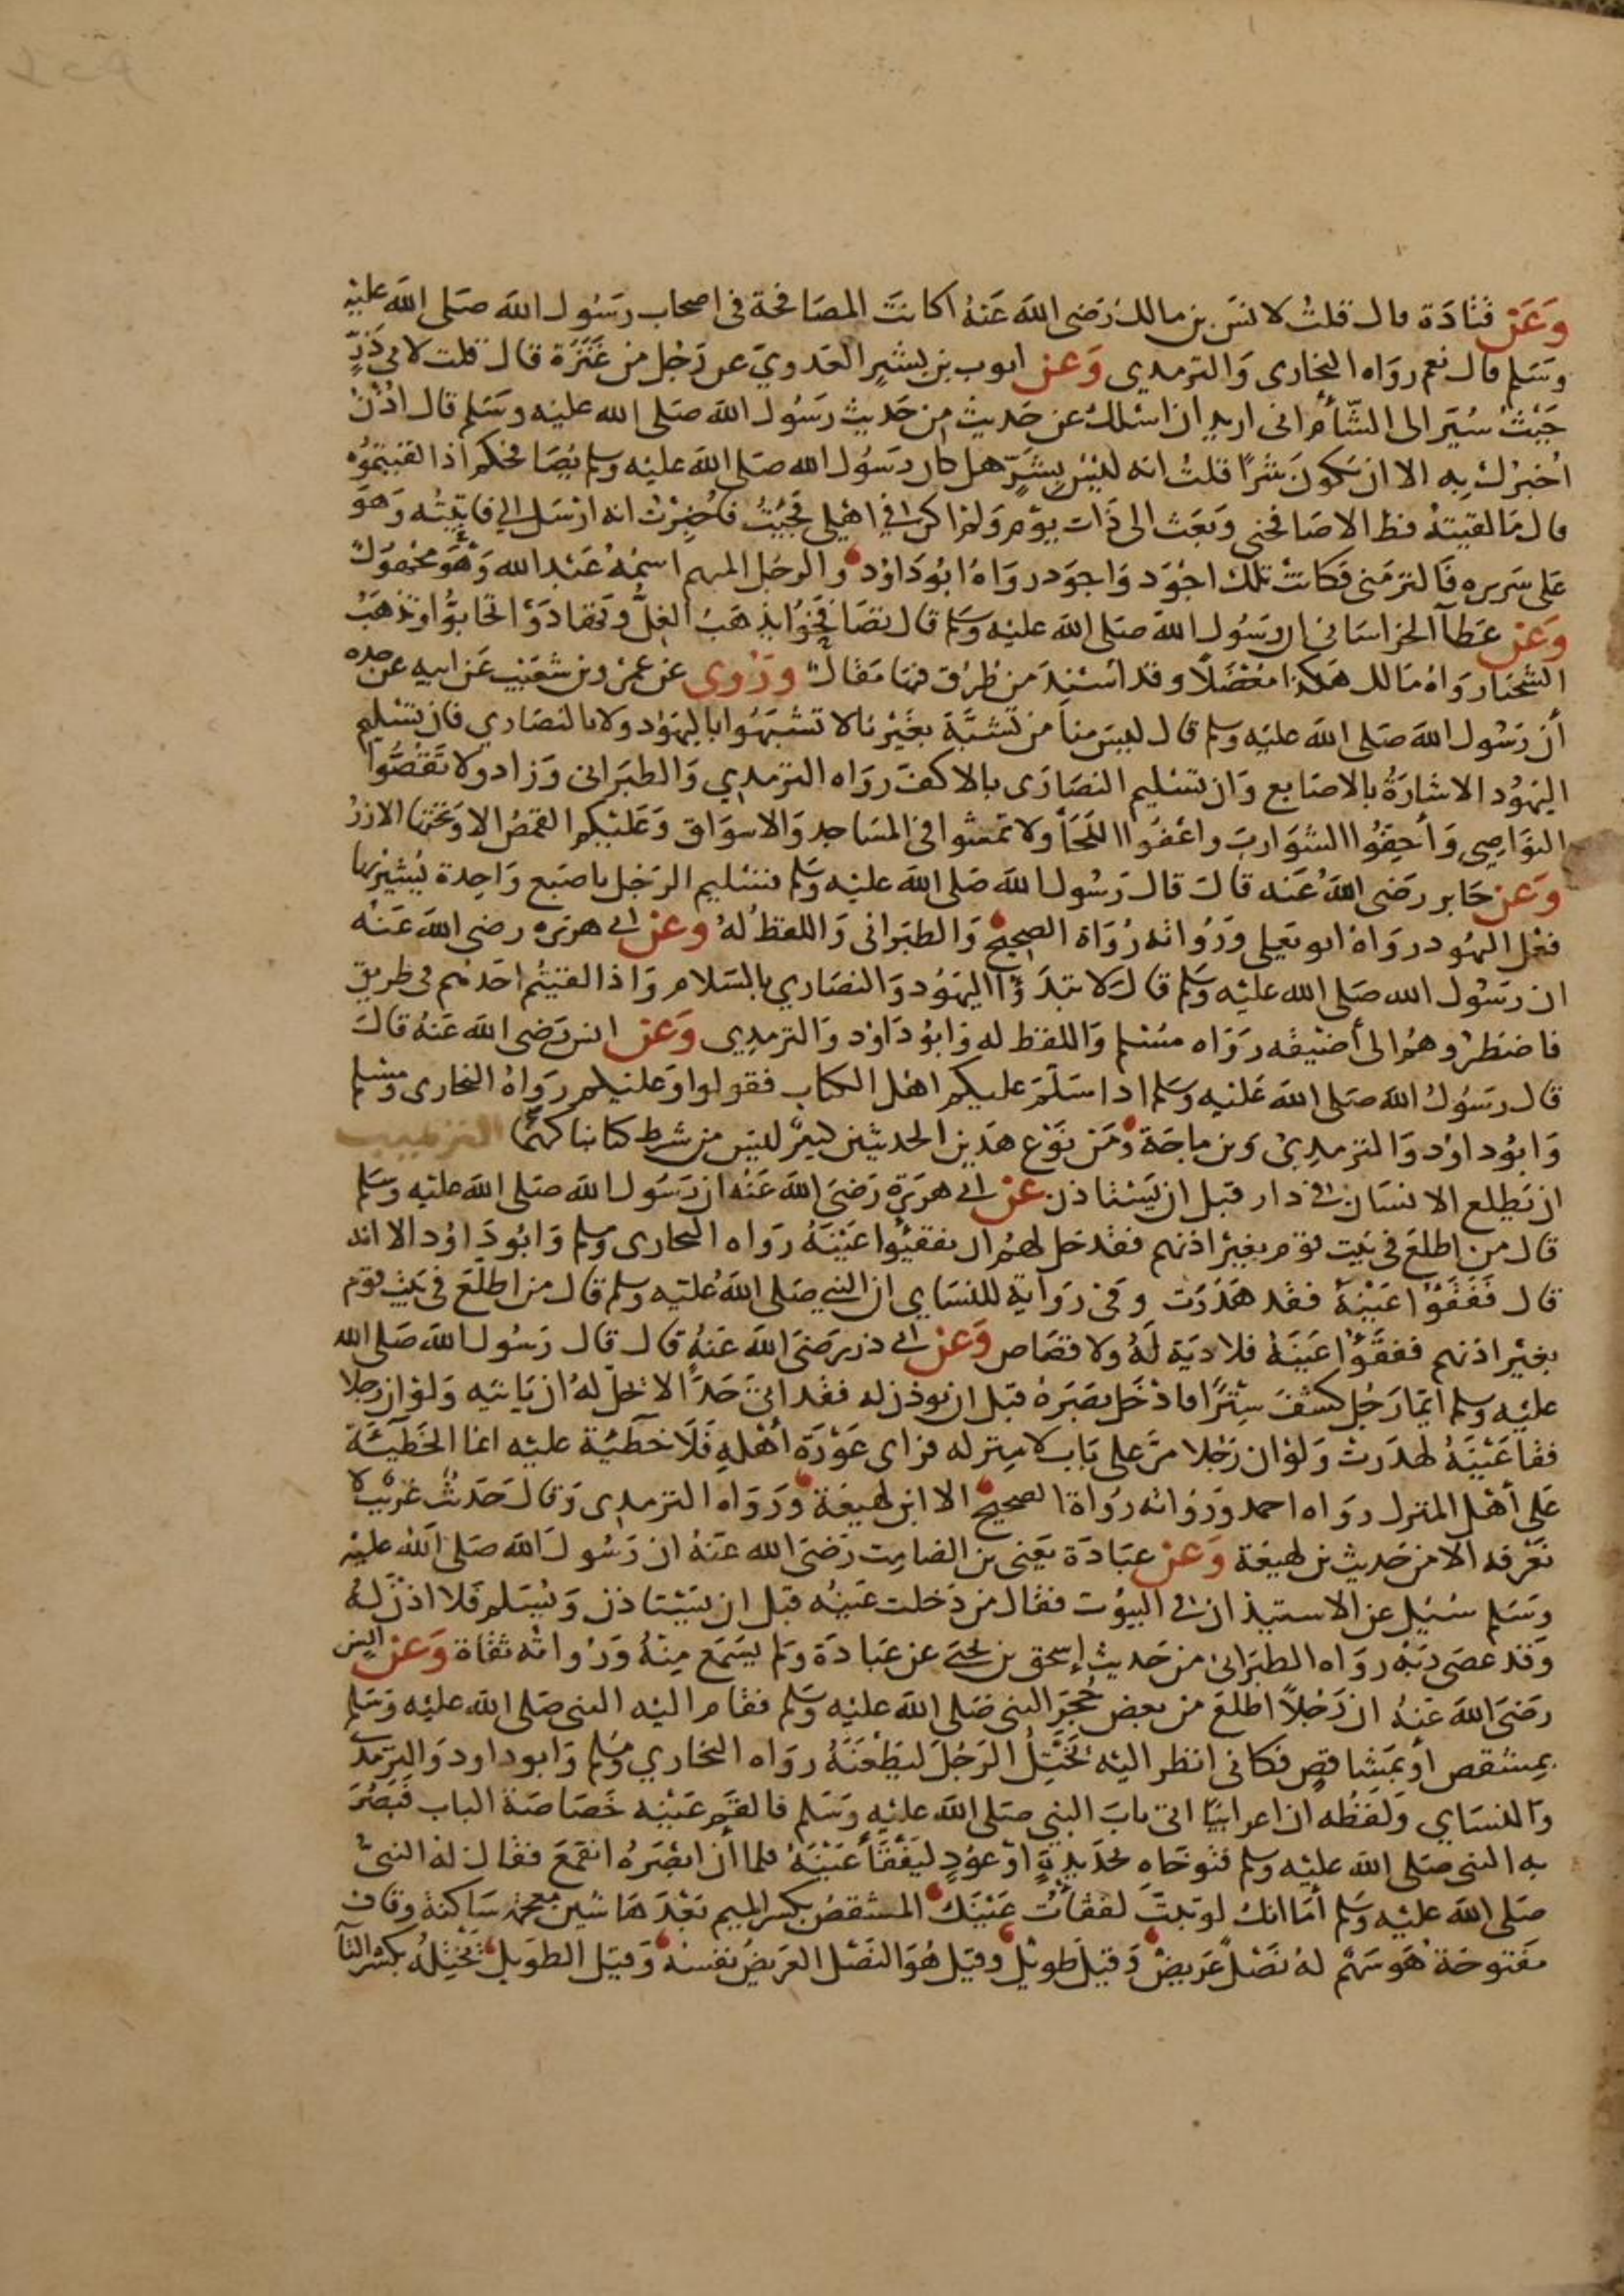 وَعَن قتادَة قال قلتُ لانسَ بن مالك رَضى الله عَنهُ اكانتَ المصَافحة فى اصحاب رسَول الله صَلى الله عليه
وسَلم قال نعم رواه البخارى وَالترمدى وَعن ايوب بن بشيرٍ العَدويّ عن رَجُل من عَنَزَة قال قلت لابى ذَرٍّ
حَيْثُ سُيّرَ الى الشّأم انى اريد ان اسئلك عن حَديث من حَديث رَسُول الله صَلى الله عليه وسَلم قال اذن
اُخبرك بِه الا ان يكونَ سَرًا قلتُ انه ليسَ بِسَرٍّ هل كان رسَول الله صَلى الله عليه وسلم يُصَافحكم اذا لقيتموُه
قال مَا لقيتهُ قط الا صَافحنى وَبعَث الى ذَات يوْم وَلم اكن فى اهْلى فجئِتُ فاُخبِرْت انه ارْسَل الي فاتيتُه وَهوَ
عَلى سَريره فالتزمَنى فكانتْ تلك اجْوَد وَاجوَد روَاهُ ابُو دَاوُد والرجُل المبهم اسمُهُ عَبْد الله وَهُو مجهوُل
وَعن عَطآ الخراسَانى ان رسَول الله صَلى الله عليه وسَلم قال تصَافحُوا يذهَبُ الغِلُّ وتهَادَوْا تحابوُّا وتذهَبُ
الشحنَا روَاهُ مَالك هَكذا معْضَلاً وقد اسْند من طُرُق فيهَا مَقال وَرُوى عن عَمْرو بن شعَيْب عَن ابيه عن جده
أن رَسُول الله صَلى الله عليه وسلم قال ليسَ مناَ من تشبَّهَ بغَيْرنا لا تشبَهُوا باليَهوُد ولا بالنصَاري فان تسْليم
اليَهُود الاشارَةُ بالاصَابع وَان تسْليم النصَارَى بالاكف روَاه الترمدي وَالطبَرانى وَزاد ولا تقصُّوا
النوَاصِى وَأحِفُوا الشوَاربَ واعْفوُا اللحَا ولا تمشوا فى المسَاجد وَالاسوَاق وَعَليْكم القمصُ الا وَتحتها الازرُ
وَعَن جَابر رضى الله عَنه قال قال رَسُول الله صَلى الله عليه وسَلم تسْليم الرَجُل باصبَع وَاحِدة يُشيرُ بهَا
فعْل اليهُود روَاهُ ابو يَعْلى وَرُواته رُوَاة الصحيح وَالطبَرانى وَاللفظ لهُ وعَن ابى هريره رضى الله عَنْه
ان رسَوُل الله صَلى الله عليْه وسَلم قال لا تبْدَؤا اليَهوُد وَالنصَاري بالسَلام وَاذا لقيتُم احَدهُم فى طريق
فاضطرُوهُم الى أضيَقه رَوَاه مسْلم وَاللفظ له وَابوُ دَاوُد وَالترمدى وَعن انس رَضى الله عَنهُ قال
قال رسَوُل الله صَلى الله عَليه وسَلم اذا سَلمَ عليكم اهْل الكتاب فقولوا وَعليكم روَاهُ البخارى ومسْلم
وَابوُ داوُد وَالترمدِىْ وَبن ماجَة ومَن نوَع هَذين الحديثين كثيرٌ ليسَ من شرط كتابنا كهمَا الترهيب
ان يَطلع الانسَان فى دار قبل ان يَستاذن عَن ابى هريَرة رَضَى الله عَنْه ان رَسَول الله صَلى الله عليه وسَلم
قال من اطلعَ فى بَيت قوْم بغيْر اذنهم فقد حَل لهم ان يفقئوا عَيْنَهُ رَواه البخارى وسلم وَابوُ دَاوُد الا انه
قال فَفَقؤُا عَيْنهُ فقد هَدَرَت وَفى رَوَاية للنسَاى ان النبى صَلى الله عليه وسلم قال من اطلعَ فى بَيْت قوْم
بغيْر اذنهم ففقَؤُا عَينَهُ فلا ديَة لَهُ ولا قصَاص وَعَن ابى ذر رَضَى الله عَنهُ قال قال رَسُول الله صَلى الله
عليْه وسلم ايّمَا رَجُل كَشفَ سِتْرًا فادْخَل بصَرَهُ قبْل ان يوذن له فقد اتىَ حَدًا لا يحلّ لهُ ان يَاتيَه وَلوْ ان رجلا
فقا عَيْنَهُ لهدَرتْ وَلوْ ان رَجُلا مرَّ على بَاب لا ستر له فراى عَوْرَة أهْلهِ فَلَا خطيئة عليْه انما الخَطَيئَة
عَلى أهْل المنزل روَاه احمد وَرُواته رُوَاة الصحيح الا ابن لهيعَة وَرَوَاه الترمدى وَقال حَديثٌ غرَيْب لا
نعْرفه الا من حَديث بن لهيعَة وَعن عبَادَة يَعْنى بن الصَامِت رَضىَ الله عَنهُ ان رَسُول الله صَلى الله عليْه
وسَلم سُئِل عن الاستيذان فى البيُوت فقال من دَخلت عَينُه قبْل ان يَسْتاذن وَيُسَلم فَلا اذْنَ لهُ
وَقد عصَى رَبّهُ روَاه الطبَرانى من حَديث إسحق بن يحيَى عن عبَادَة وَلم يسَمَع منِهُ وَرُواتُه ثقاة وَعن انس
رضَىَ الله عَنهُ ان رَجُلاً اطلعَ من بعض حُجَرَ النبى صَلى الله عليْه وسَلم فقام اليْه النبى صَلى الله عليْه وَسَلم
بمِشقص أو بمَشاقصٍ فكانى انظر اليْه يَخْتِلُ الرَجُل ليَطْعَنَهُ روَاه البخاري ومسْلم وَابو داود وَالترمدي
وَالنسَاي وَلفظُه ان اعرابيًا اتى بابَ النبى صَلى الله عليْه وسَلم فالقمَ عَيْنَه خَصَاصَة الباب فبَصُرَ
به النبى صَلى الله عليْه وسلم فتوخاه بحَدِيدَةٍ اوْ عوُدٍ ليَفْقَأ عَيْنَهُ فلما أن ابْصَرهُ انقمَعَ فقال لهُ النبىّ
صَلى الله عليْه وسَلم أمَا انكَ لو ثبتَّ لفقأتُ عَيْنكَ المشقصُ بكسر الميم بَعْدَهَا شين معجمة سَاكنة وقاف
مفتوحَة هُوَ سَهْم لهُ نصْل عَرَيضٌ وَقيل طويْل وقيل هُوَ النصْل العَريضُ نفسهُ وقيل الطوَيل يَخْتِلُه بكسْر التآ